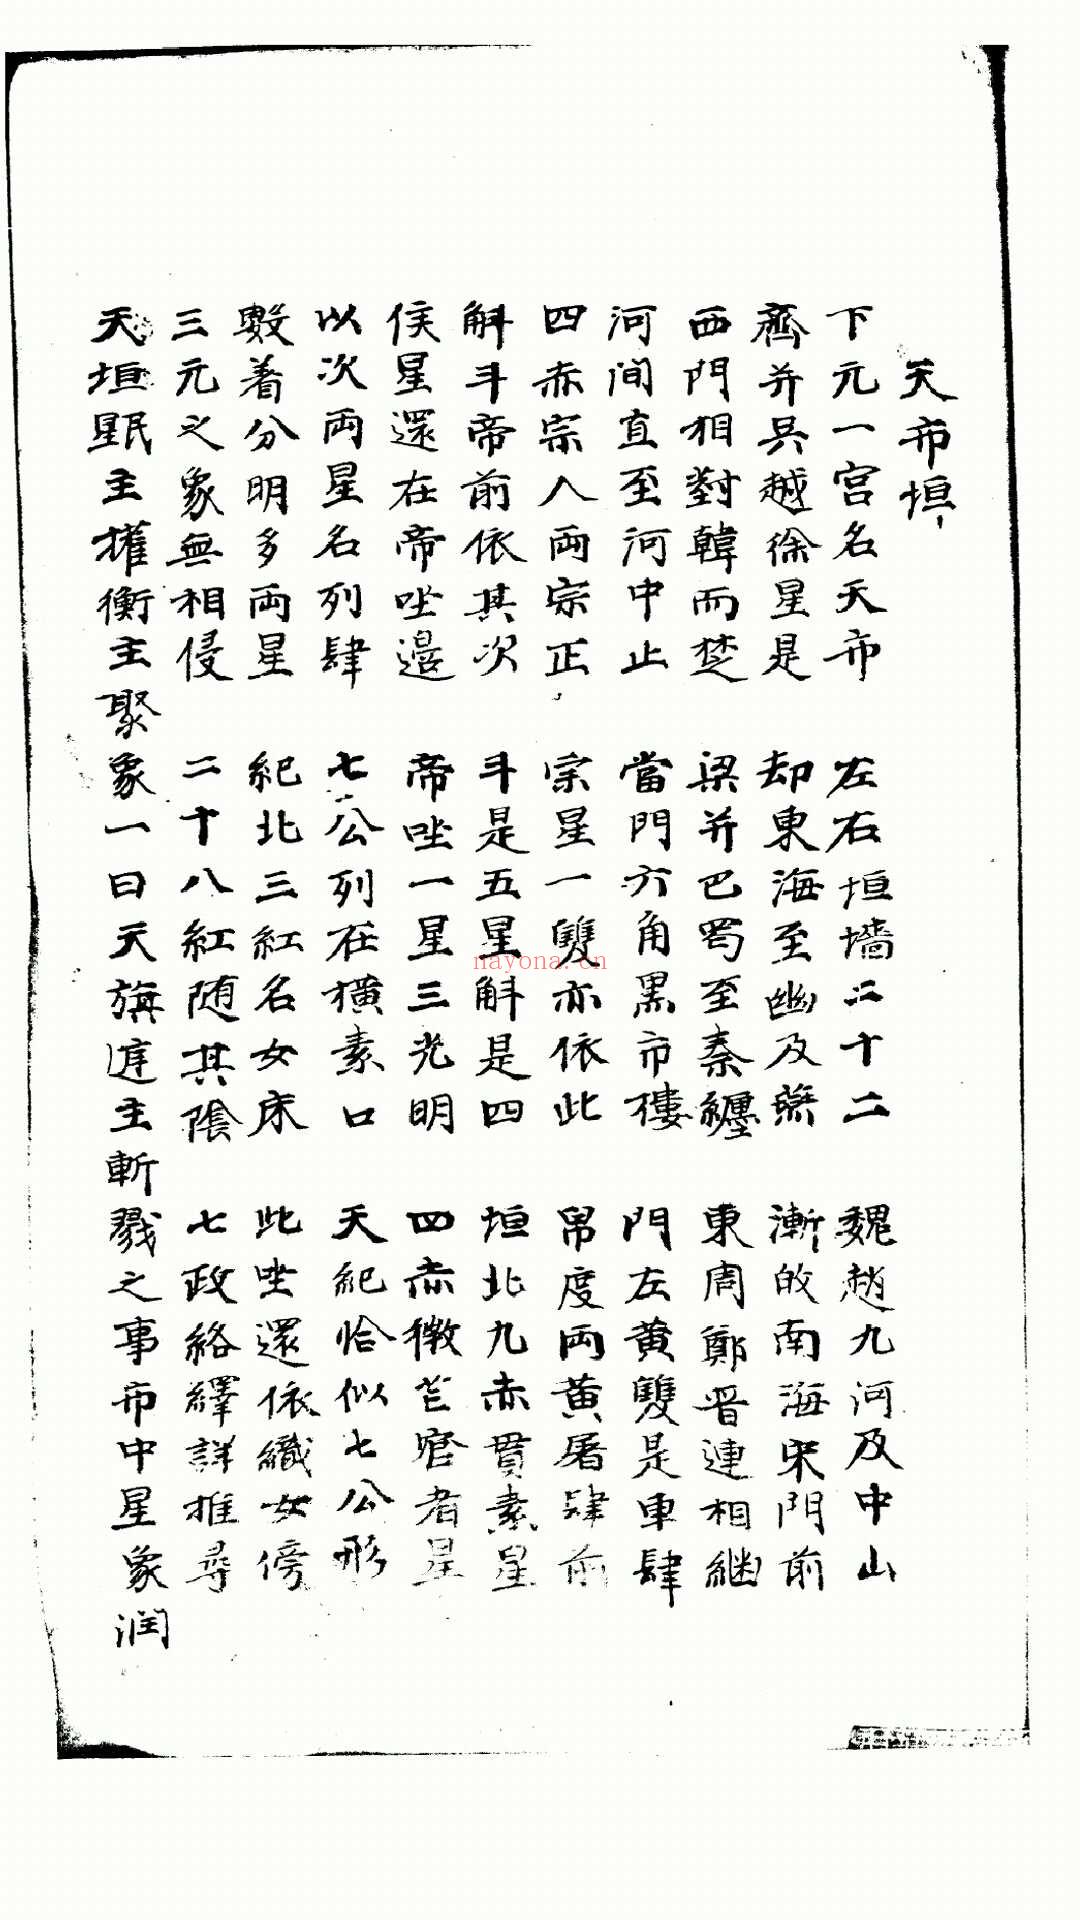 天市垣
下元一宮名天市　左右垣墻二十二　魏趙九河及中山
齊并吳越徐星是　却東海至幽及燕　漸的南海宋門前
西門相對韓而楚　梁并巴蜀至秦纏　東周鄭晋連相継
河间直至河中止　當門六角黒市樓　門左黄雙是車肆
四赤宗人兩宗正　宗星一雙亦依此　帛度両黄屠肆前
斛斗帝前依其次　斗是五星斛是四　垣北九赤貫素星
侯星還在帝坐邉　帝坐一星三光明　四赤微芒宦者星
以次両星名列肆　七公列在横素口　天紀恰似七公形
數着分明多両星　紀北三紅名女床　此坐還依織女傍
三元之象無相侵　二十八紅随其陰　七政絡繹詳推尋
天垣星民主權衡主聚象一曰天旗庭主斬戮之事市中星象润
nayona.cn